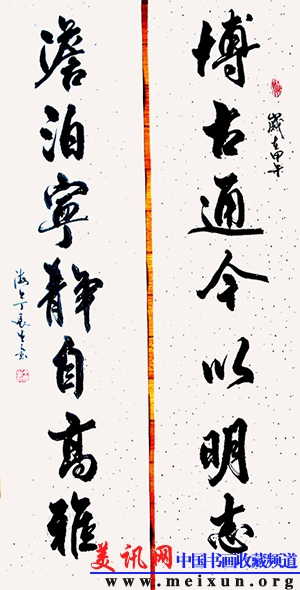 博古通今以明志
歲在甲午
澹泊寧靜自高雅
海上丁
美讯网 中国书画收藏频道
www.meixun.org